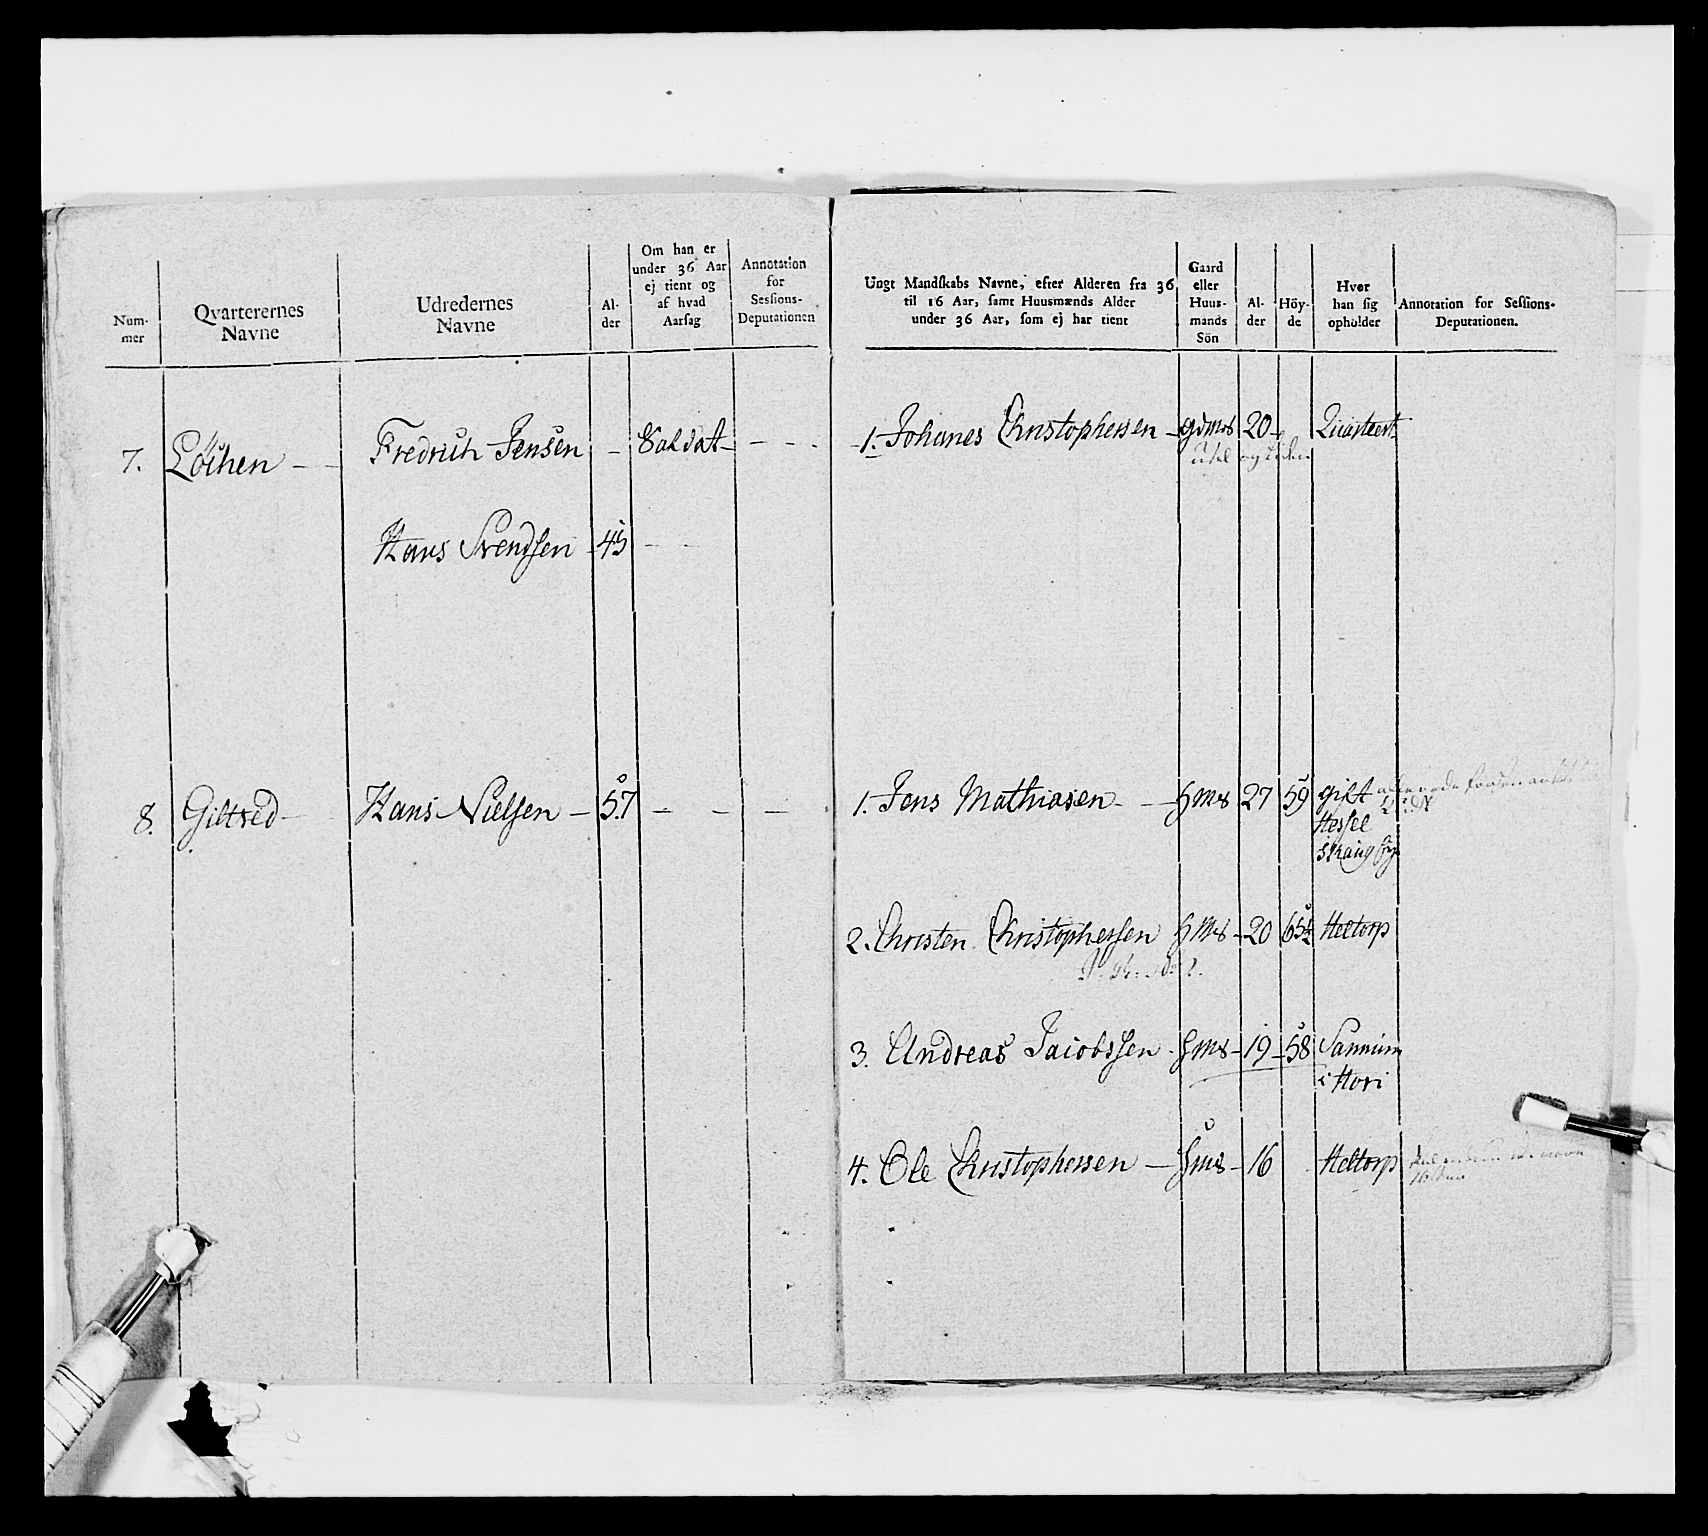 Num-
mer
Qvarterernes
Navne
Udredernes
Navne
Al-
der
Om han er
under 36 Aar
ej tient og
af hvad
Aarsag
Annotation
for
Sessions-
Deputationen
7. Löchen - - Fredrich Jensen - Soldat - - -
Hans Svendsen - 45 - -
8. Giltred - Hans Nielsen - 57 - - -
Ungt Mandskabs Navne, efter Alderen fra 36
til 16 Aar, samt Huusmænds Alder
under 36 Aar, som ej har tient
Gaard
eller
Huus-
mands
Sön
Al-
der
Höy-
de
Hvor
han sig
opholder
Annotation for Sessions-
Deputationen.
1. Johanes Christophersen - gdms 20 - Quarteert
1. Jens Mathiasen - - Hms 27 59 gift
Hessel
2. Christen Christophersen Hms - 20 Heltorp
3. Andreas Jacobssen - Hms - 19 - 58 Sannum
i Hovi
4. Ole Christophersen - Hms - 16 Heltorp